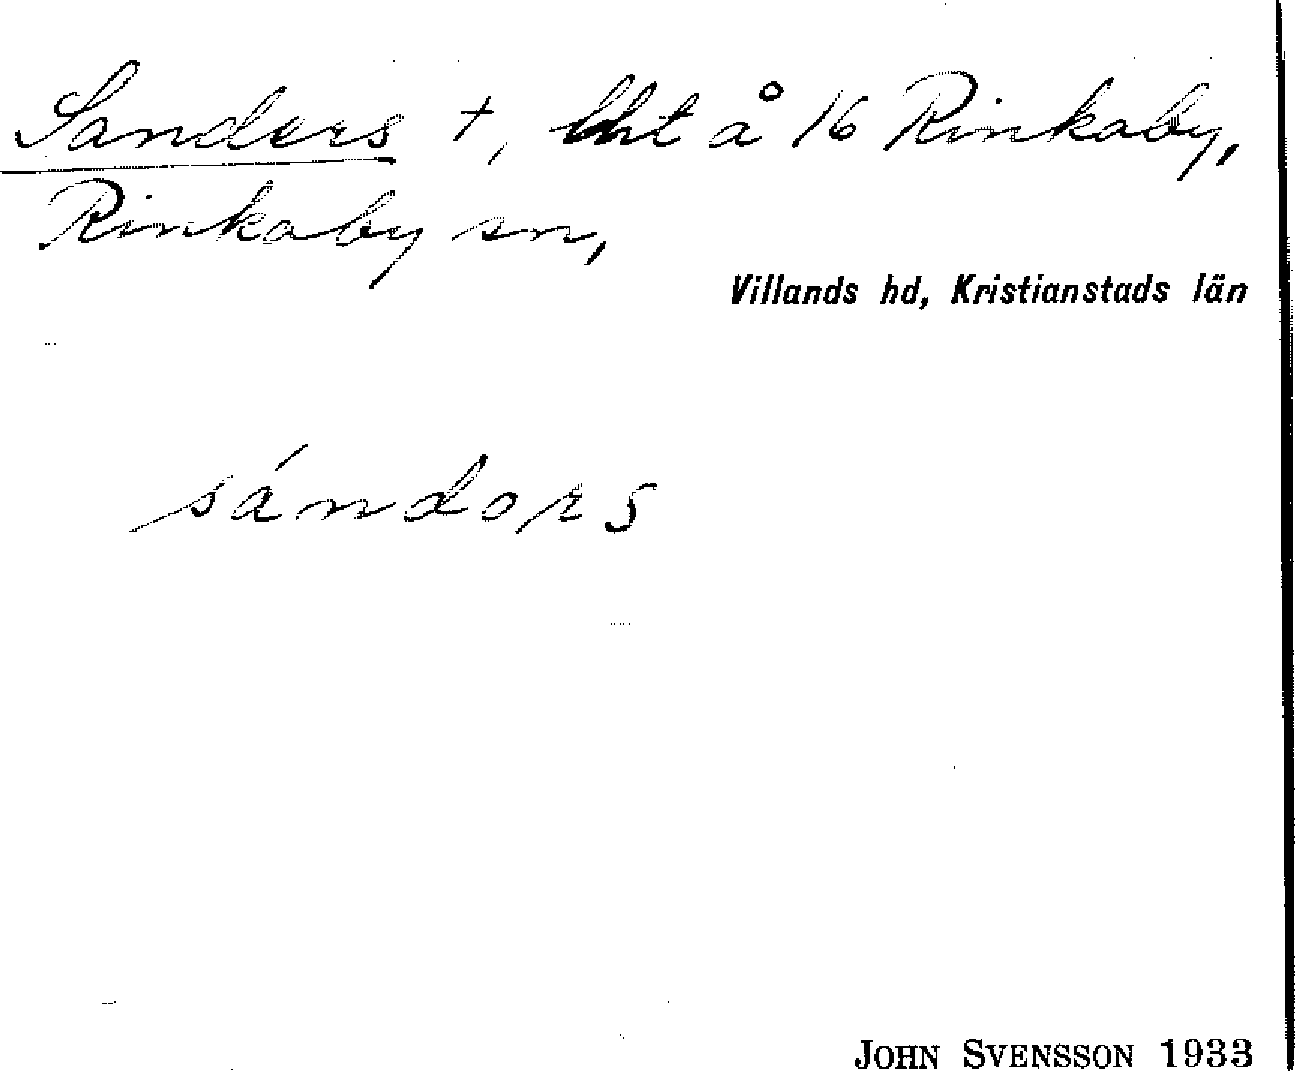 Sanders +, lht å 16 Rinkaby,
Rinkaby sn,
Villands hd, Kristianstads län
sándors
JOHN SVENSSON 1933